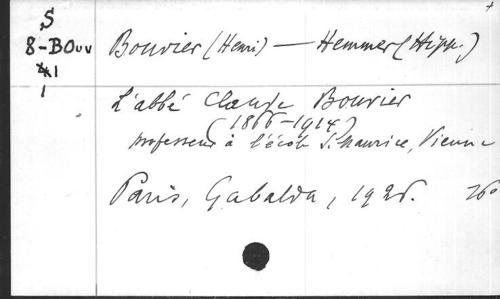 S
8-BOUV
1
Bouvier (Henri) — Hemmer (Hipp.)
L'abbé Claude Bouvier
(1866-1914)
professeur à l'école S. Maurice, Vienne
Paris, Gabalda,